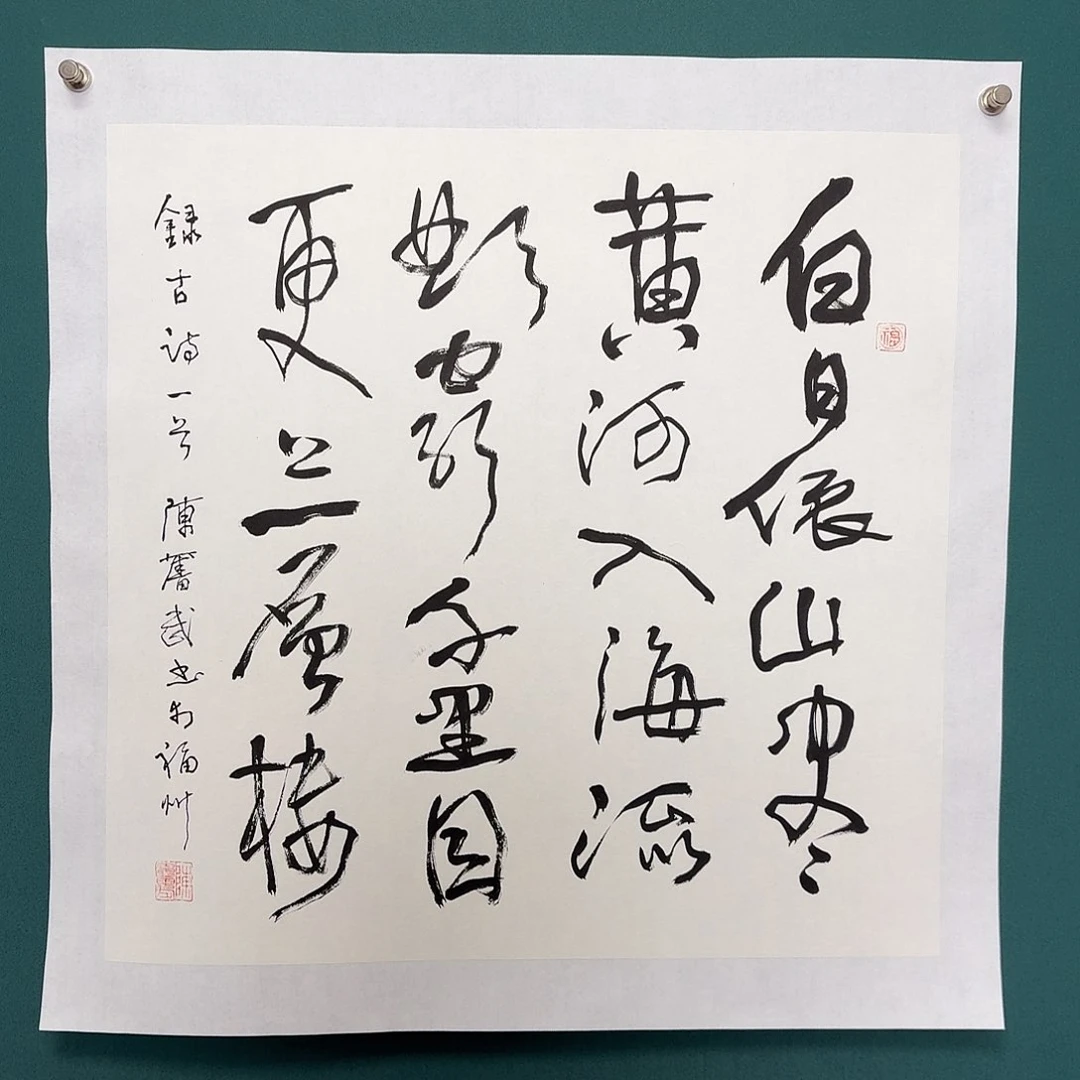 白日依山尽
黄河入海流
欲窮千里目
更上一層樓
録古詩一首 陳 書於福州